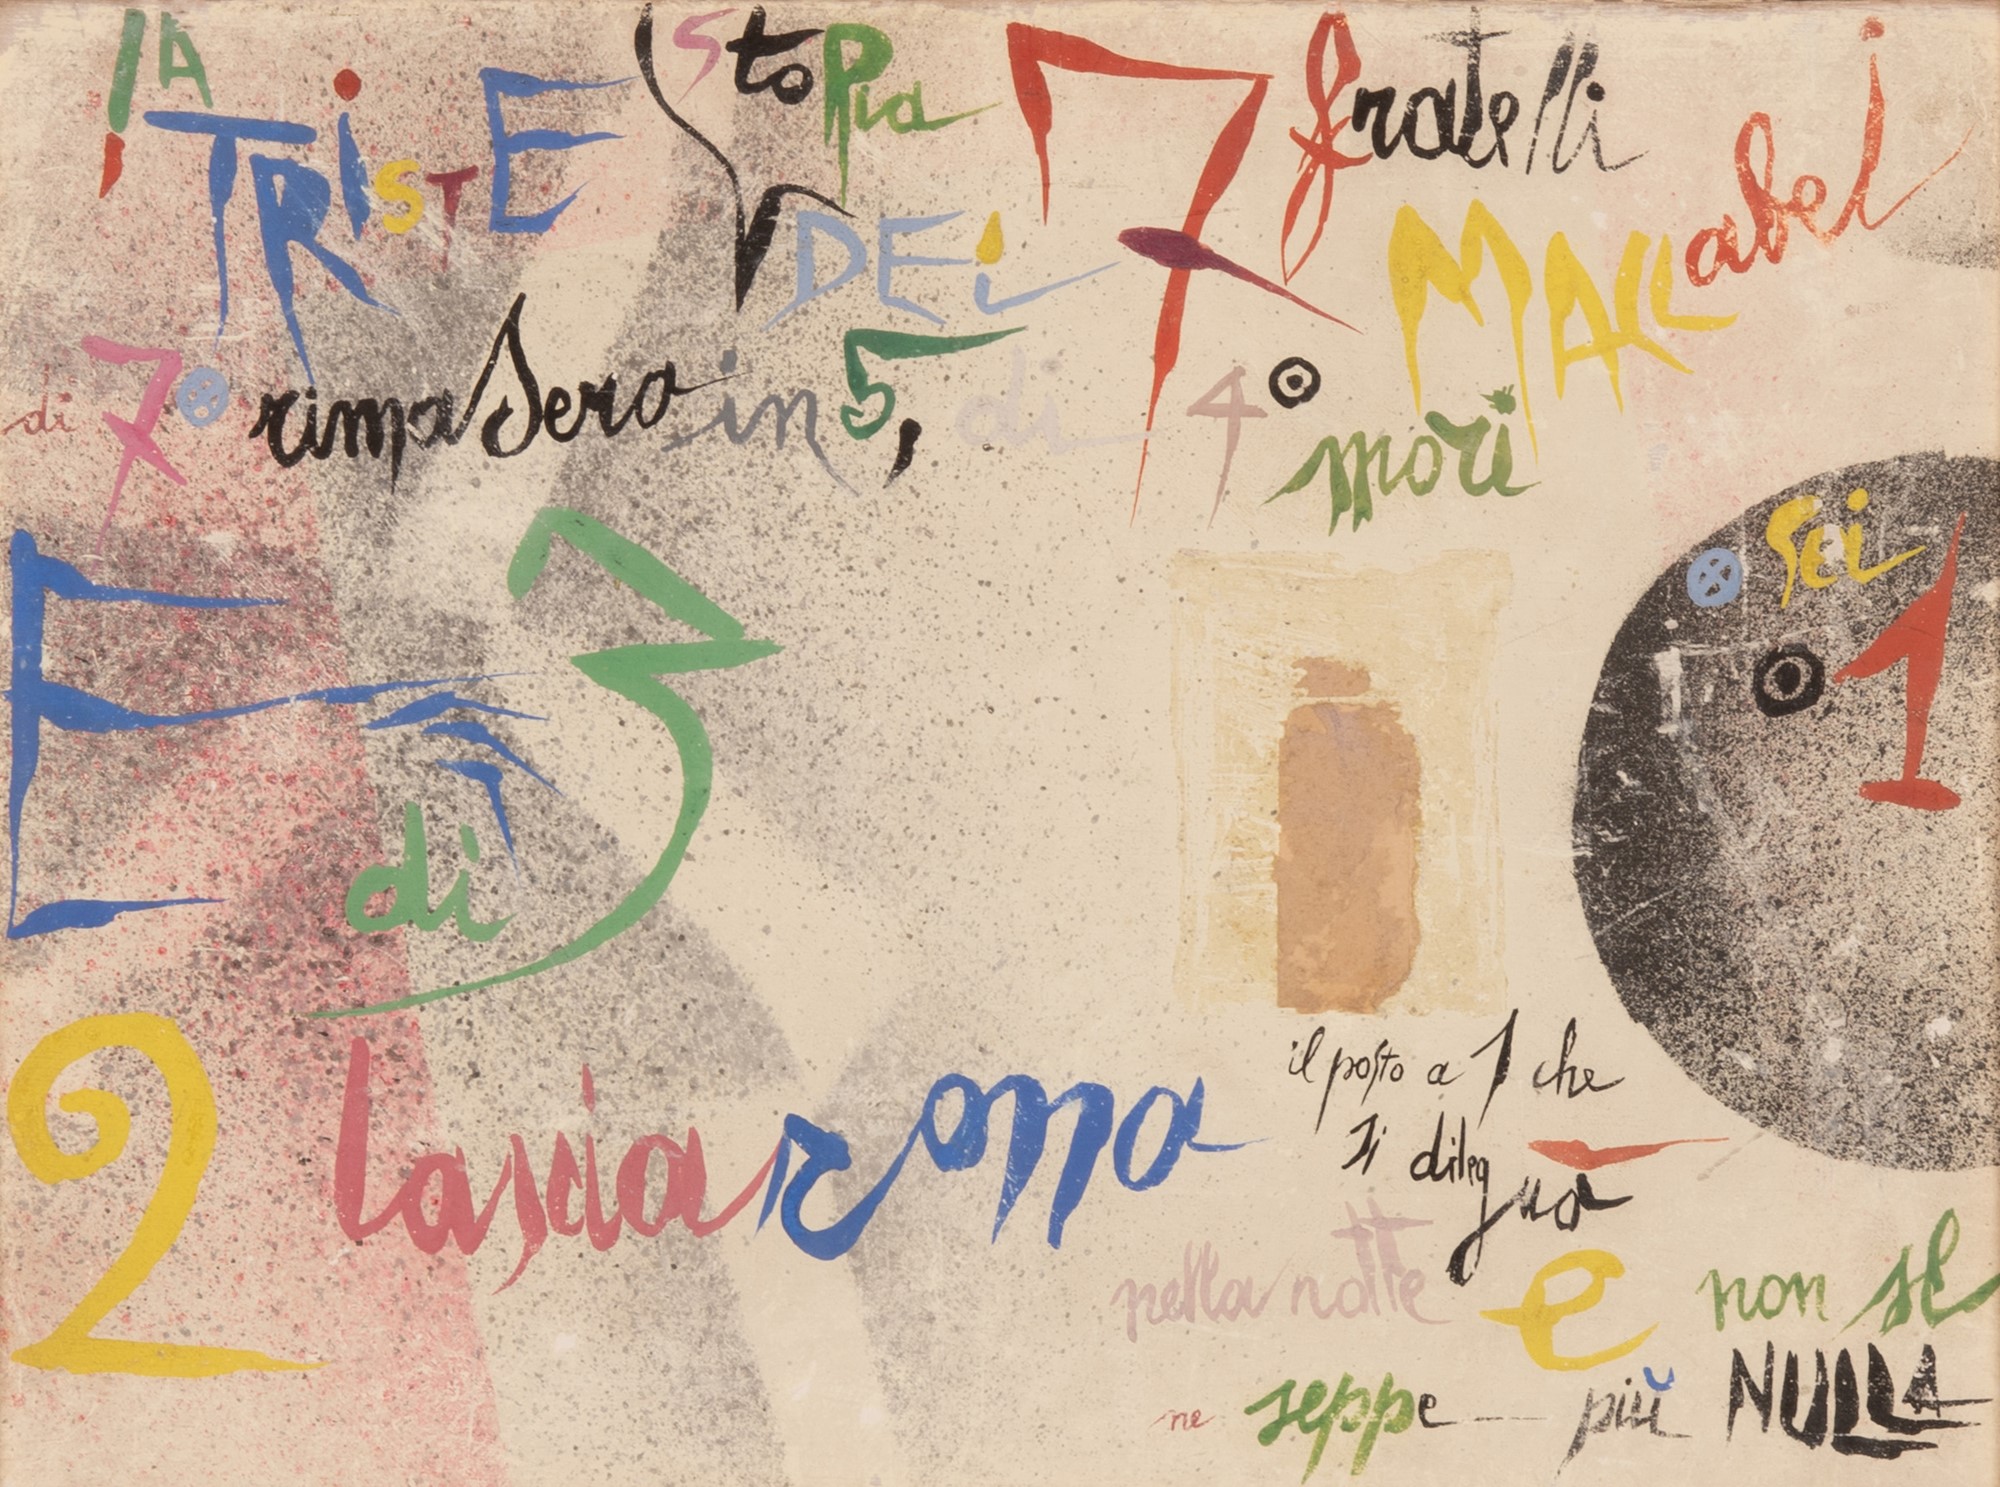 lA TRiSTE StoRia DEi 7 fratelli MACCabei
di 7 rimasero in 5, di 4 mori
sei 1
E di 3
2 lasciarono
il posto a 1 che
si dileguò
nella notte E non se
ne seppe — più NULLA